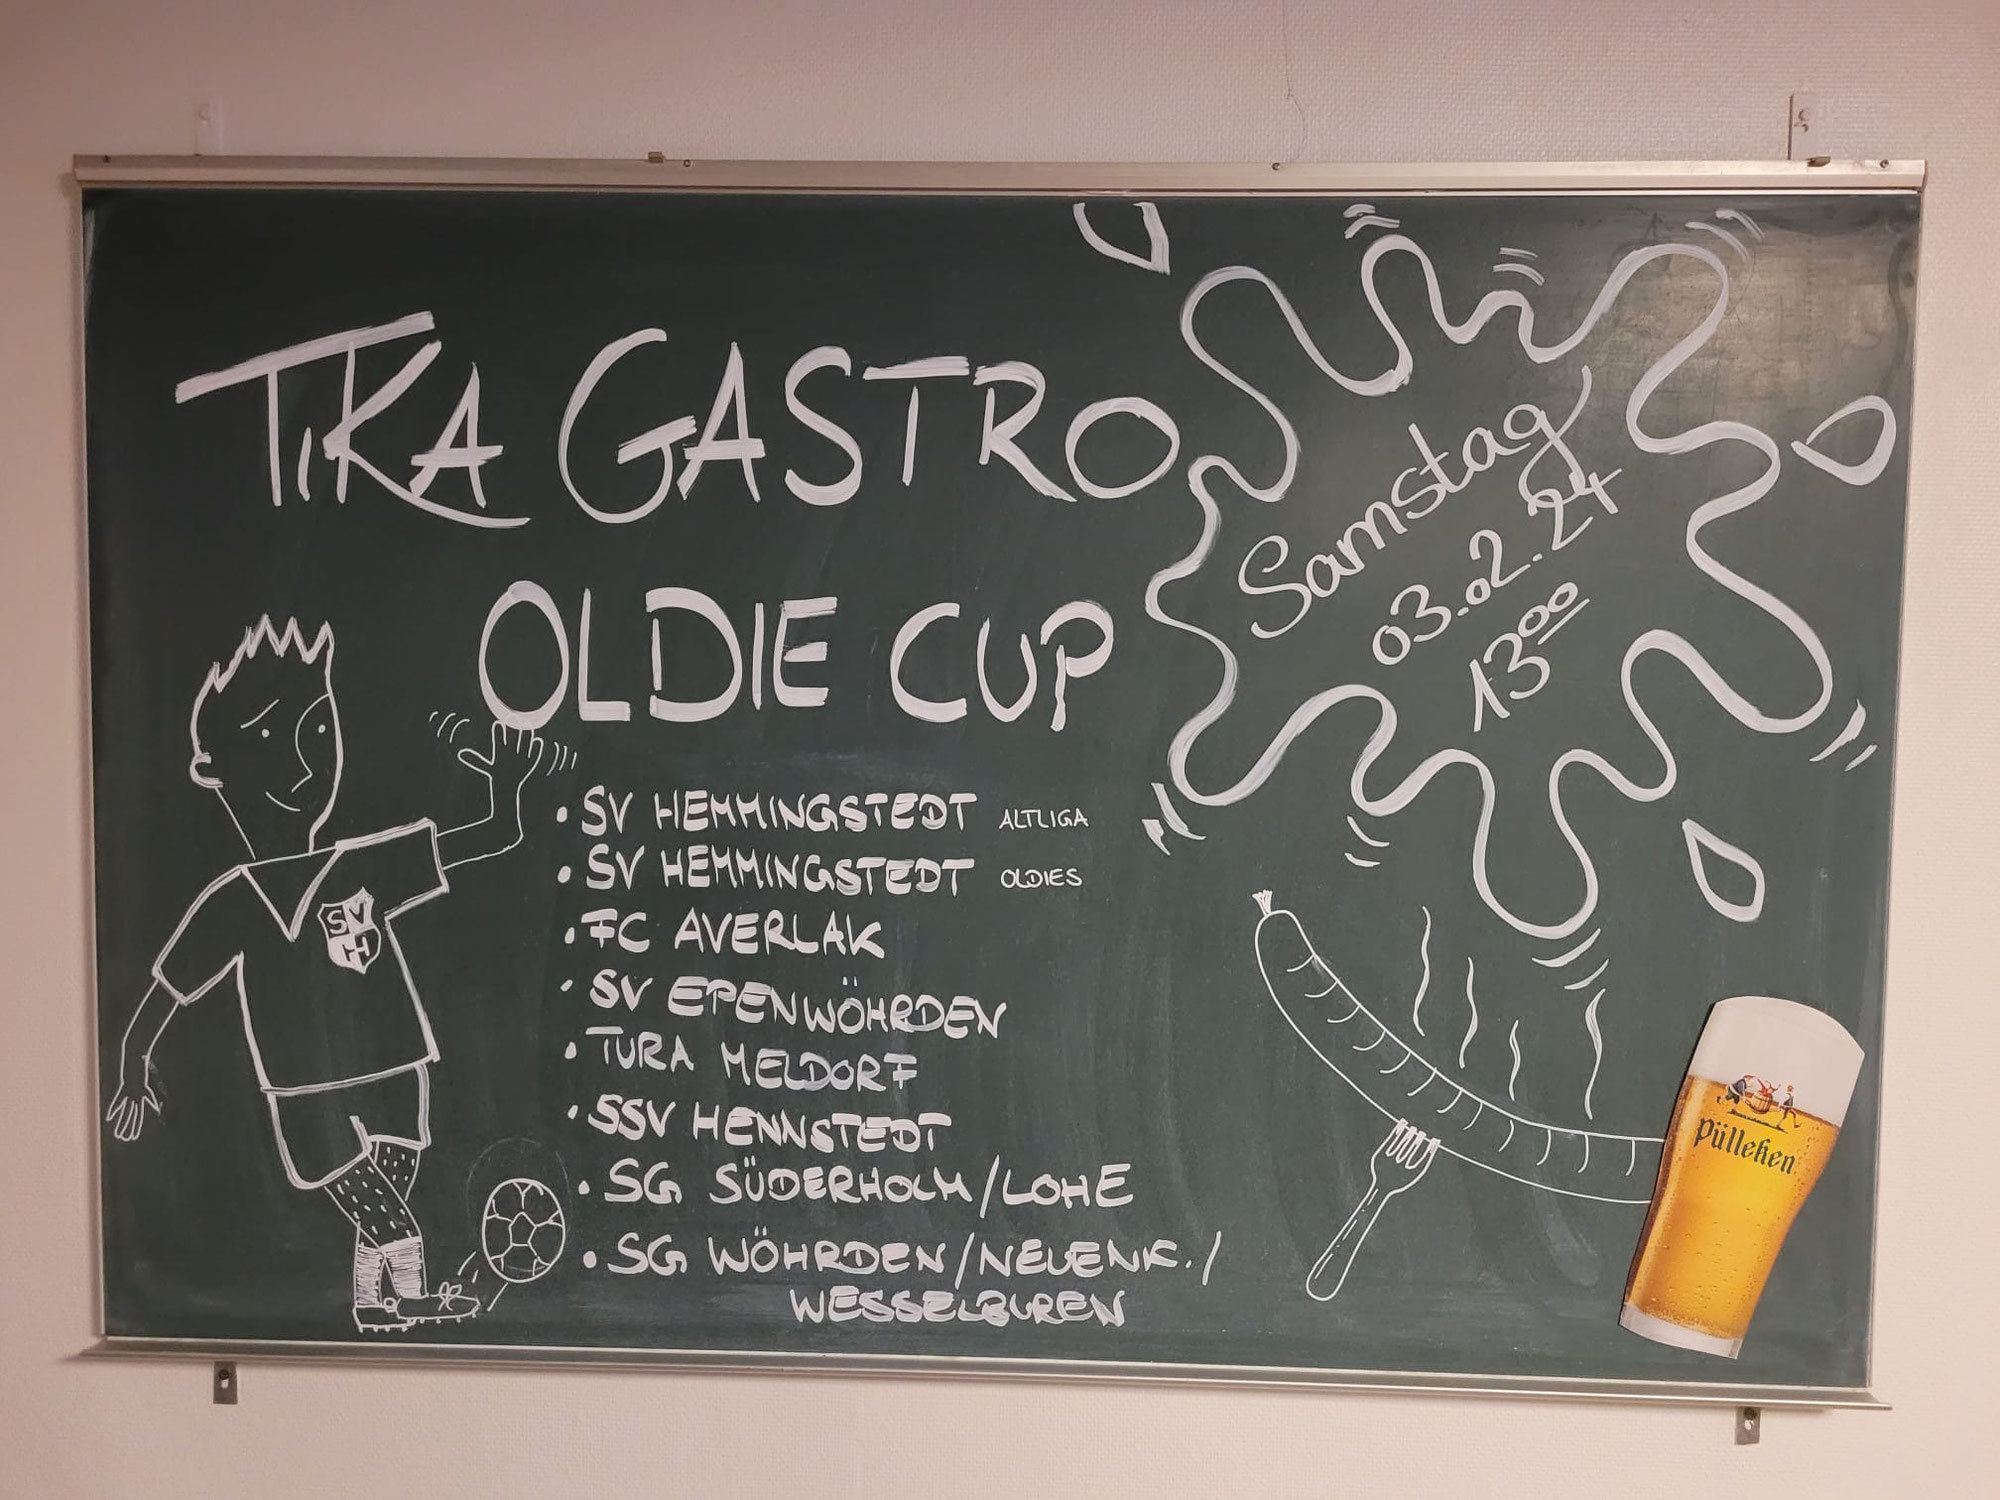 TIKA GASTRO
OLDIE CUP
Samstag
03.02.24
13⁰⁰
• SV HEMMINGSTEDT ALTLIGA
• SV HEMMINGSTEDT OLDIES
• FC AVERLAK
• SV EPENWÖHRDEN
• TURA MELDORF
• SSV HENNSTEDT
• SG SÜDERHOLM/LOHE
• SG WÖHRDEN/NEUENK./
WESSELBUREN
SV
H
Pülleken